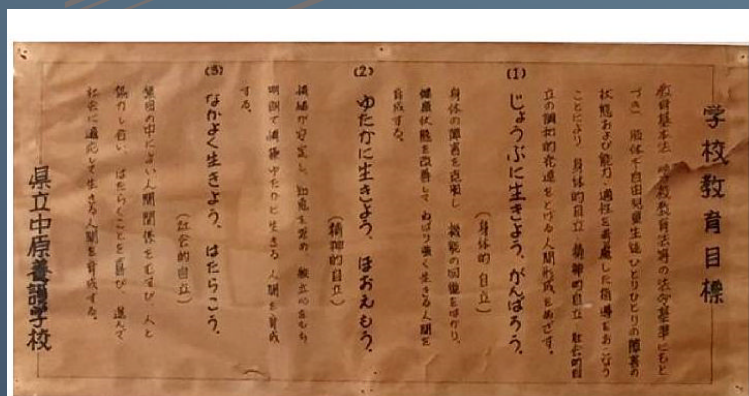 学校教育目標
教育基本法、学校教育法等の法令基準にもと
づき、肢体不自由児童生徒ひとりひとりの障害の
状態および能力・適性を考慮した指導をおこなう
ことにより、身体的自立、精神的自立、社会的自
立の調和的発達をとげる人間形成をめざす。
(1) じょうぶに生きよう、がんばろう。
(身体的自立)
身体の障害を克服し、機能の回復をはかり、
健康状態を改善して ねばり強く生きる人間を
育成する。
(2) ゆたかに生きよう、ほおえもう。
(精神的自立)
情緒が安定し、知恵を深め、独立心をもち
明朗で情操ゆたかに生きる人間を育成
する。
(3) なかよく生きよう、はたらこう。
(社会的自立)
集団の中によい人間関係をむすび、人と
協力し合い、はたらくことを喜び、進んで
社会に適応して生きる人間を育成する。
県立中原養護学校